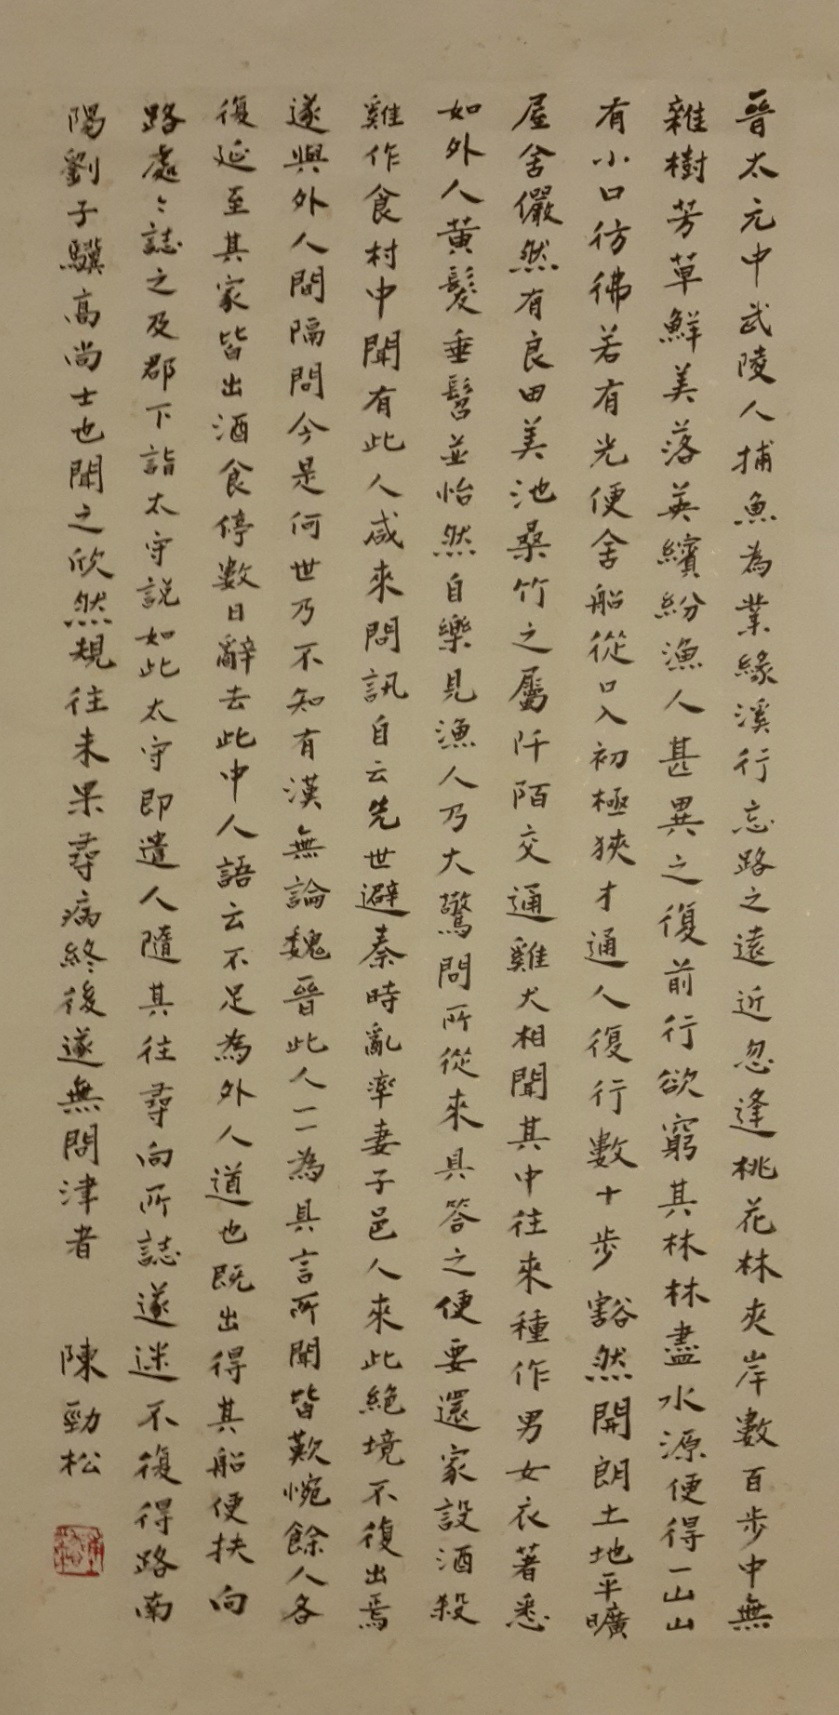 晉太元中武陵人捕魚為業緣溪行忘路之遠近忽逢桃花林夾岸數百步中無
雜樹芳草鮮美落英繽紛漁人甚異之復前行欲窮其林林盡水源便得一山山
有小口彷彿若有光便舍船從口入初極狹才通人復行數十步豁然開朗土地平曠
屋舍儼然有良田美池桑竹之屬阡陌交通雞犬相聞其中往來種作男女衣著悉
如外人黃髮垂髫並怡然自樂見漁人乃大驚問所從來具答之便要還家設酒殺
雞作食村中聞有此人咸來問訊自云先世避秦時亂率妻子邑人來此絕境不復出焉
遂與外人間隔問今是何世乃不知有漢無論魏晉此人一一為具言所聞皆歎惋餘人各
復延至其家皆出酒食停數日辭去此中人語云不足為外人道也既出得其船便扶向
路處〻誌之及郡下詣太守説如此太守即遣人隨其往尋向所誌遂迷不復得路南
陽劉子驥高尚士也聞之欣然規往未果尋病終後遂無問津者 陳勁松